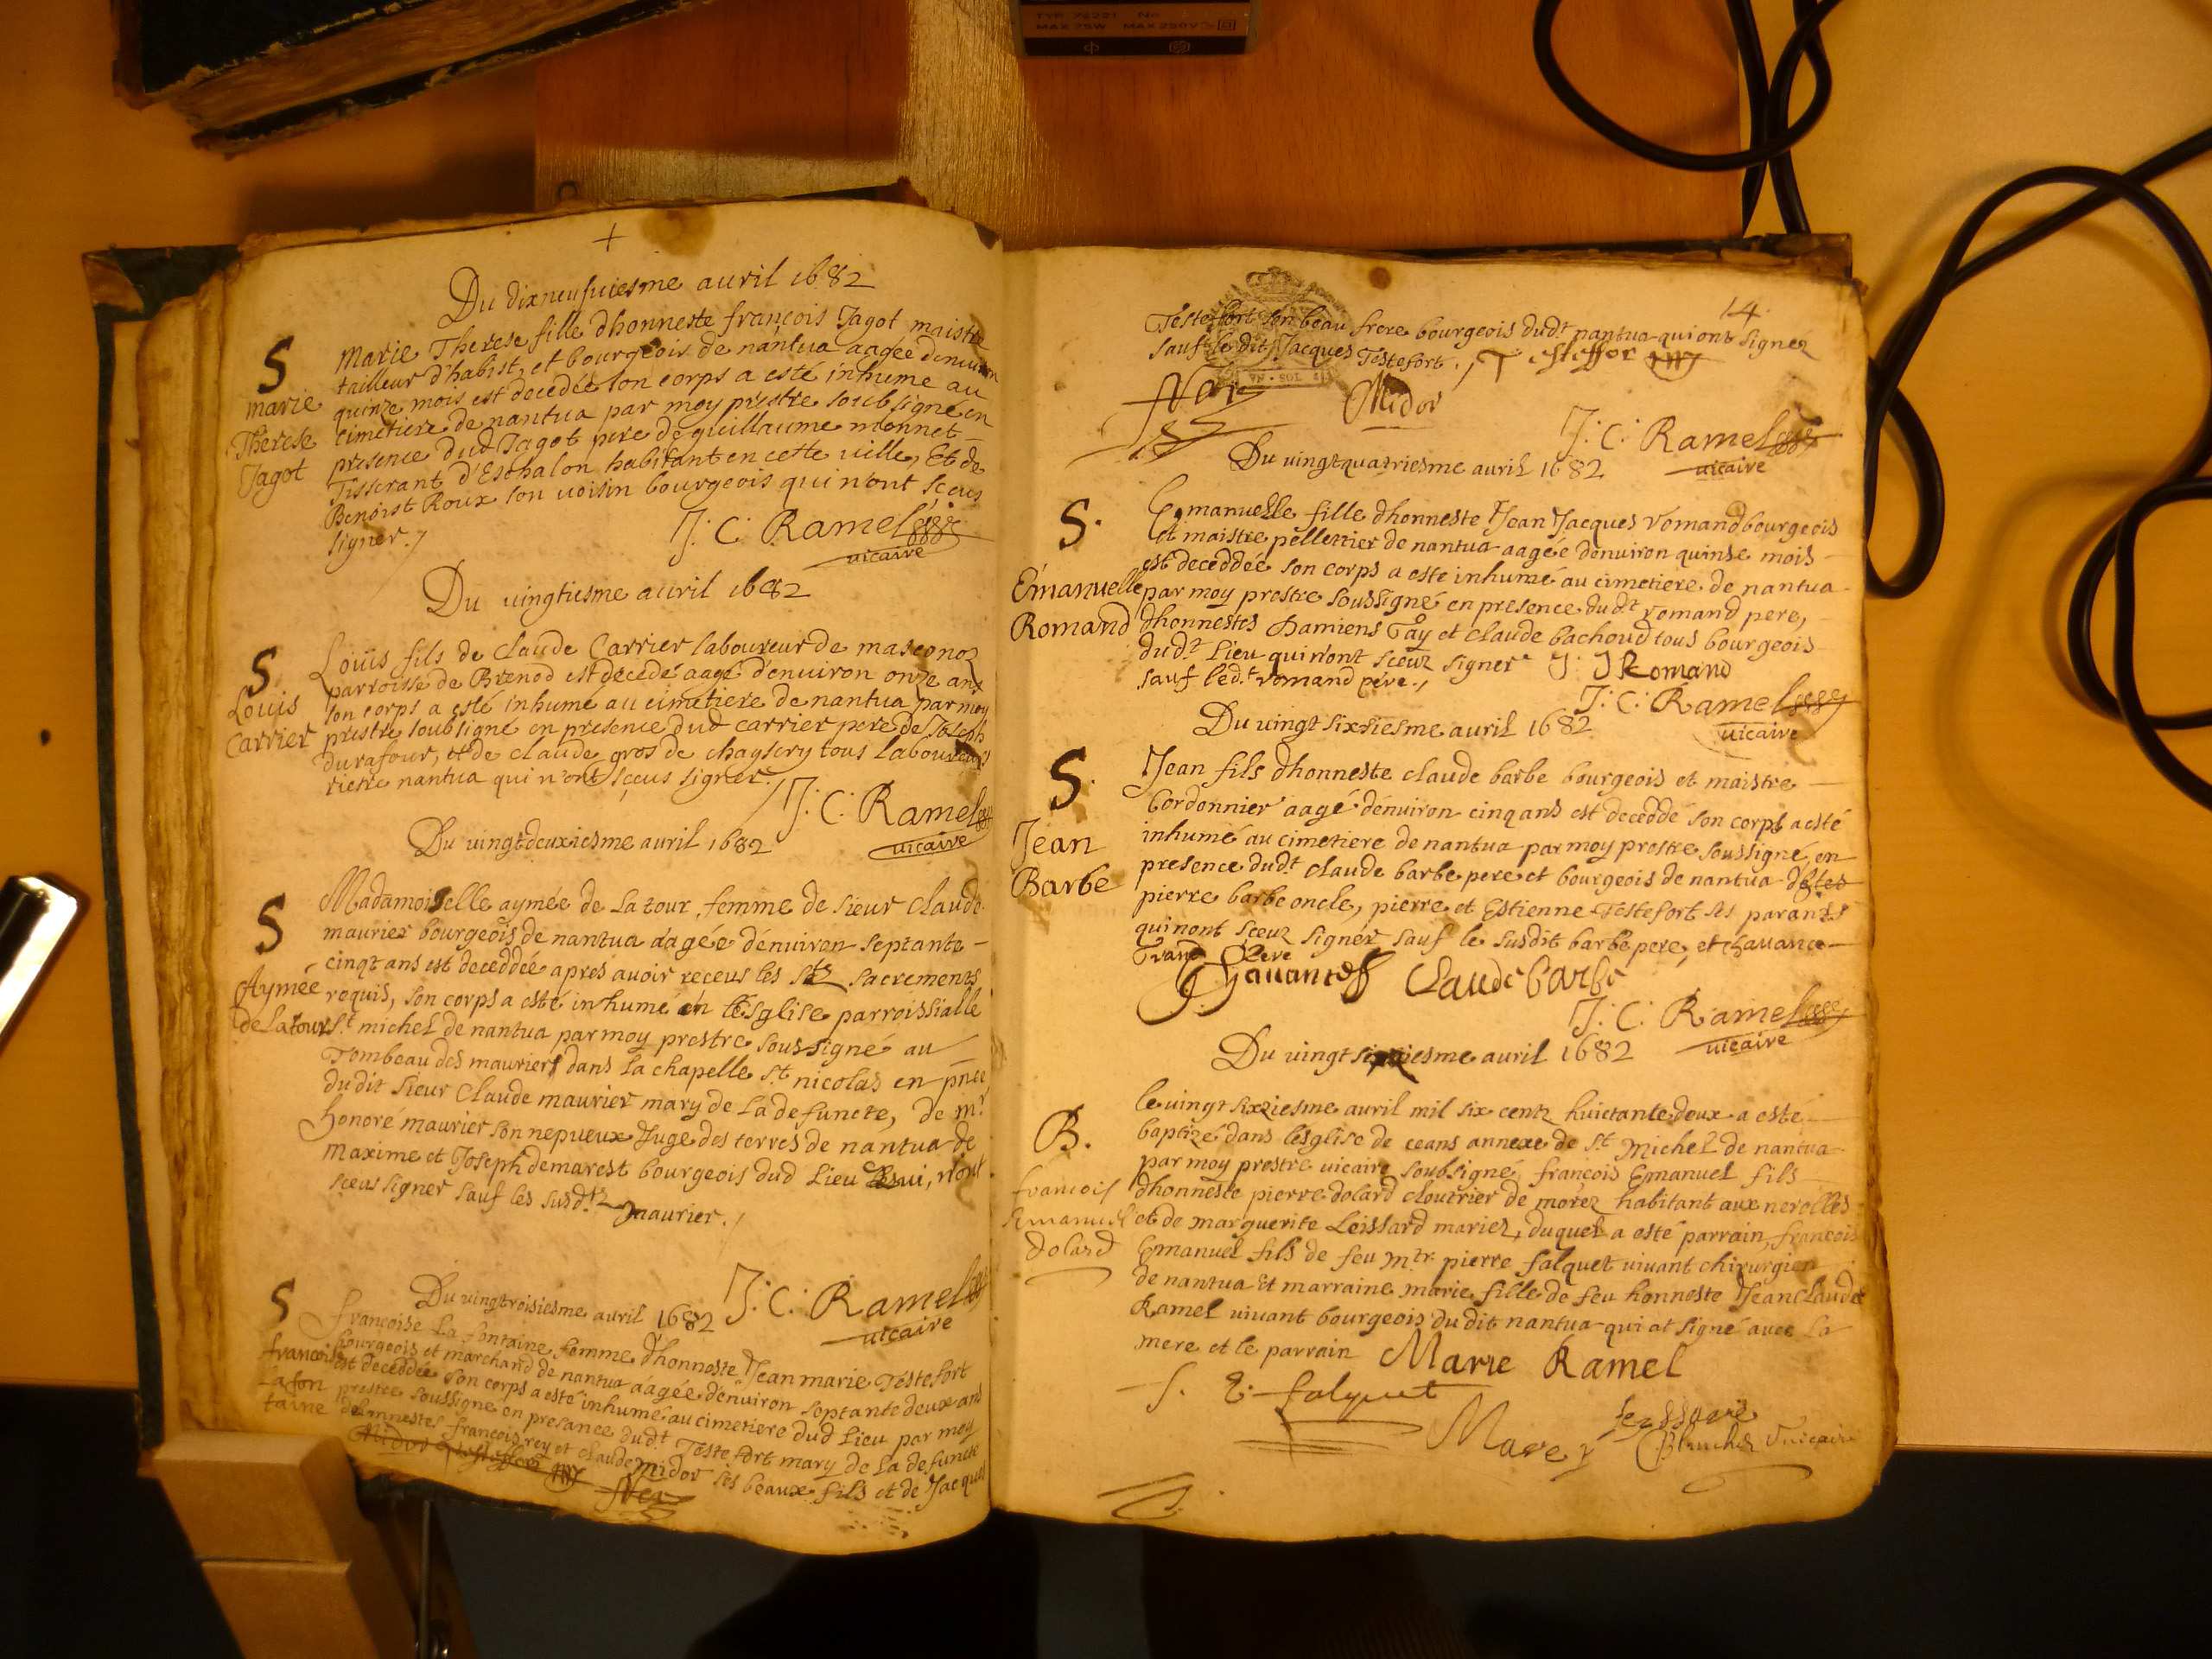 TYP 72231 No
MAX 75W MAX 250V
+
Du dixneufuiesme auril 1682
S
marie
Therese
Jagot
Marie Therese fille dhonneste françois Jagot maistre
tailleur d'habist, et bourgeois de nantua aagée denuiron
quinze mois est decedée son corps a esté inhume au
cimetiere de nantua par moy prestre soubsigné en
presence dud Jagot pere de guillaume monnet
Tisserant d'Eschalon habitant en cette uille, Et de
Benoist Roux son uoisin bourgeois qui n'ont sceus
signer./
J: C: Ramel
uicaire
Du uingtiesme auril 1682
S
Louis
Carrier
Loüis fils de claude Carrier laboureur de masconoz
parroisse de Brenod est décedé aagé d'enuiron onze ans
son corps a esté inhumé au cimetiere de nantua par moy
prestre soubsigné en presence dud carrier pere de Joseph
durafour, et de claude gros de chaysery tous laboureurs
riere nantua qui n'ont sceus signer.
J: C: Ramel
uicaire
Du uingtdeuxiesme auril 1682
S
Aymée
de Latour
Madamoiselle aymée de La tour, femme de sieur claude
maurier bourgeois de nantua aagée dénuiron septante
cinqt ans est deceddée apres auoir receus les stz sacrements
requis, son corps a esté inhumé en l'Esglise parroissialle
st michel de nantua par moy prestre soussigné au
Tombeau des mauriers dans la chapelle st nicolas en pnce
du dit sieur Claude maurier mary de La defuncte, de mr
honoré maurier son nepueux Juge des terres de nantua de
maxime et Joseph demarest bourgeois dud Lieu qui, n'ont
sceus signer sauf les susdts maurier./
J: C: Ramel
uicaire
Du uingtroisiesme auril 1682
S
francoise
Lafon
taine
françoise La fontaine femme dhonneste Jean marie Testefort
bourgeois et marchand de nantua aagée dénuiron septante deux ans
est deceddée son corps a esté inhumé au cimetiere dud Lieu par moy
prestre soussigné en presance dudt Testefort mary de La defuncte
françois rey et claude midor ses beaux fils et de Jacques
14
Testefort son beau frere bourgeois dudt nantua qui ont signéz
sauf le dit Jacques Testefort./
Midor
J: C: Ramel
uicaire
Du uingtquatriesme auril 1682
S.
Emanuelle
Romand
Emanuelle fille dhonneste Jean Jacques romand bourgeois
et maistre pelletier de nantua aagée dénuiron quinse mois
est deceddée son corps a este inhumé au cimetiere de nantua
par moy prestre soussigné en presence dudt romand pere,
dhonnestes Damiens Tay et claude bachoud tous bourgeois
dudt Lieu qui n'ont sceuz signer
sauf ledt romand pere./
J: J Romand
J: C: Ramel
uicaire
Du uingt sixsiesme auril 1682
S.
Jean
Barbe
Jean fils dhonneste claude barbe bourgeois et maistre
Cordonnier aagé dénuiron cinq ans est deceddé son corps a esté
inhumé au cimetiere de nantua par moy prestre soussigné, en
presence dudt claude barbe pere et bourgeois de nantua
pierre barbe oncle, pierre et Estienne Testefort ses parants
qui n'ont sceuz signer sauf le susdit barbe pere, et chauance
Grand Pere
Chauance Claude Barbe
J: C: Ramel
uicaire
Du uingt sixiesme auril 1682
B.
francois
Emanuel
dolard
le uingt sixziesme auril mil six centz huictante deux a esté
baptizé dans lesglise de ceans annexe de st Michel de nantua
par moy prestre uicaire soubsigné, françois Emanuel fils
dhonneste pierre dolard cloutrier de morez habitant aux nerolles
et de marguerite Leissard mariez, duquel a esté parrain, francois
Emanuel fils de feu mtr pierre falquet uiuant chirurgien
de nantua Et marraine marie fille de feu honneste Jean Claude
Ramel uiuant bourgeois du dit nantua qui at signé auec La
mere et le parrain Marie Ramel
f. E. falquet